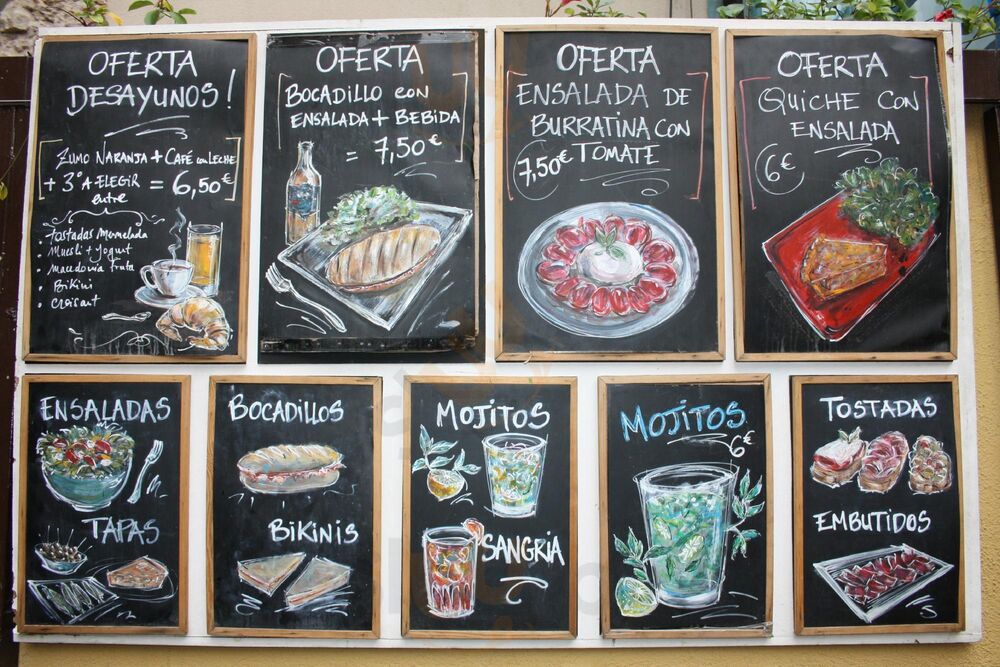 OFERTA
DESAYUNOS!
ZUMO NARANJA + CAFÉ con LECHE
+ 3º A ELEGIR = 6,50€
entre
• Tostadas Mermelada
• Muesli + Yogurt
• Macedonia fruta
• Bikini
• Croisant
OFERTA
BOCADILLO CON
ENSALADA + BEBIDA
= 7,50€
OFERTA
ENSALADA DE
BURRATINA CON
7,50€ TOMATE
OFERTA
QUICHE CON
ENSALADA
6€
ENSALADAS
TAPAS
BOCADILLOS
BIKINIS
MOJITOS
SANGRIA
MOJITOS
6€
TOSTADAS
EMBUTIDOS